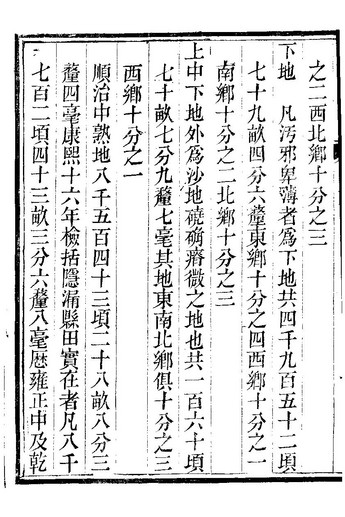 之二西北鄉十分之三
下地　凡汚邪卑薄者爲下地共四千九百五十二頃
七十九畝四分六釐東鄉十分之四西鄉十分之一
南鄉十分之二北鄉十分之三
上中下地外爲沙地磽确瘠微之地也共一百六十頃
七十畝七分九釐七毫其地東南北鄉俱十分之三
西鄉十分之一
順治中熟地八千五百四十三頃二十八畝八分三
釐四毫康熙十六年檢括隱漏縣田實在者凡八千
七百二頃四十三畝三分六釐八毫歷雍正中及乾